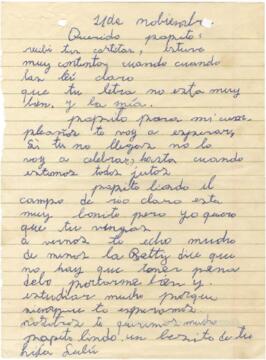 21 de nobiembre.
Querido papito:
recibí tus cartitas, estuve
muy contenta cuando cuando
las leí claro
que tu letra no esta muy
bien, y la mía.
papito para mi cum-
pleaños te voy a esperar,
Si tú no llegas no lo
voy a celebrar, hasta cuando
estemos todos jutos
papito lindo el
campo de rio claro esta
muy bonito pero yo quiero
que tu vengas
a vernos te echo mucho
de menos la Betty dice que
no hay que tener pena
debo portarme bien y
estudiar mucho porque
siempre te esperamos
nosotros te queremos mucho
papito lindo un besito de tu
hija